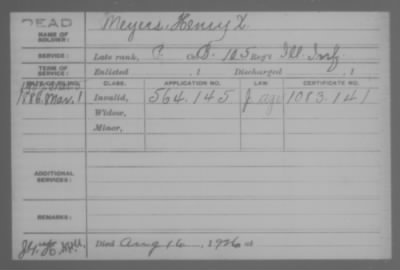 DEAD
NAME OF SOLDIER: Meyers, Henry L
SERVICE: Late rank, P. Co. B. 105 Reg't Ill. Inf.
TERM OF SERVICE: Enlisted , 1 Discharged , 1
DATE OF FILING. CLASS. APPLICATION NO. LAW. CERTIFICATE NO.
1886 Mar. 1 Invalid, 564.145 1083.141
Widow,
Minor,
ADDITIONAL SERVICES:
REMARKS:
Died Aug 16, 1926 at